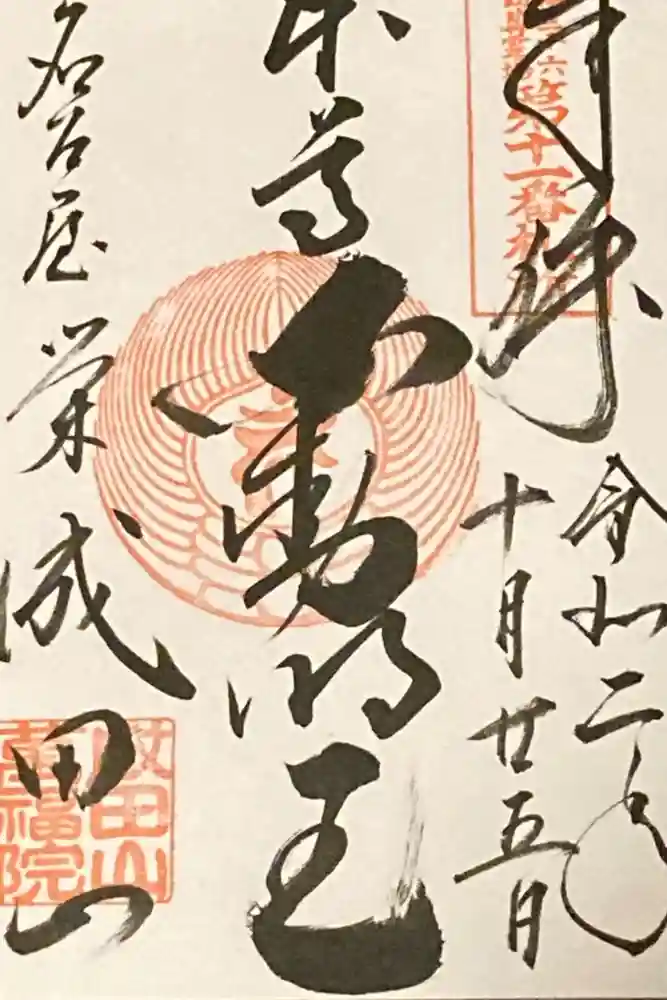 奉拝
令和二年
十月廿五日
第十一番札所
本尊
不動明王
名古屋栄
成田山
成田山
萬福院